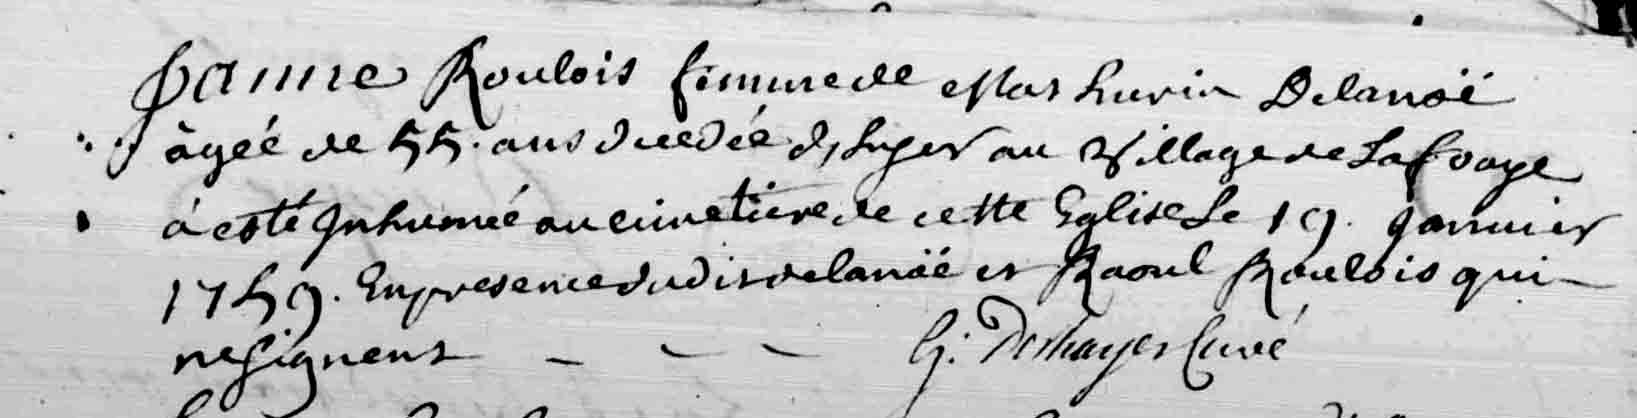 Janne Roulois femme de Mathurin Delanoë
àgéé de 55. ans decedéé d'hyer au Village de La fouaye
á esté Inhumeé au cimetiere de cette Eglise Le 19. Janvier
1759. En presence dudit delanöé et Raoul Roulois qui
ne signent
G. Deshayes Curé